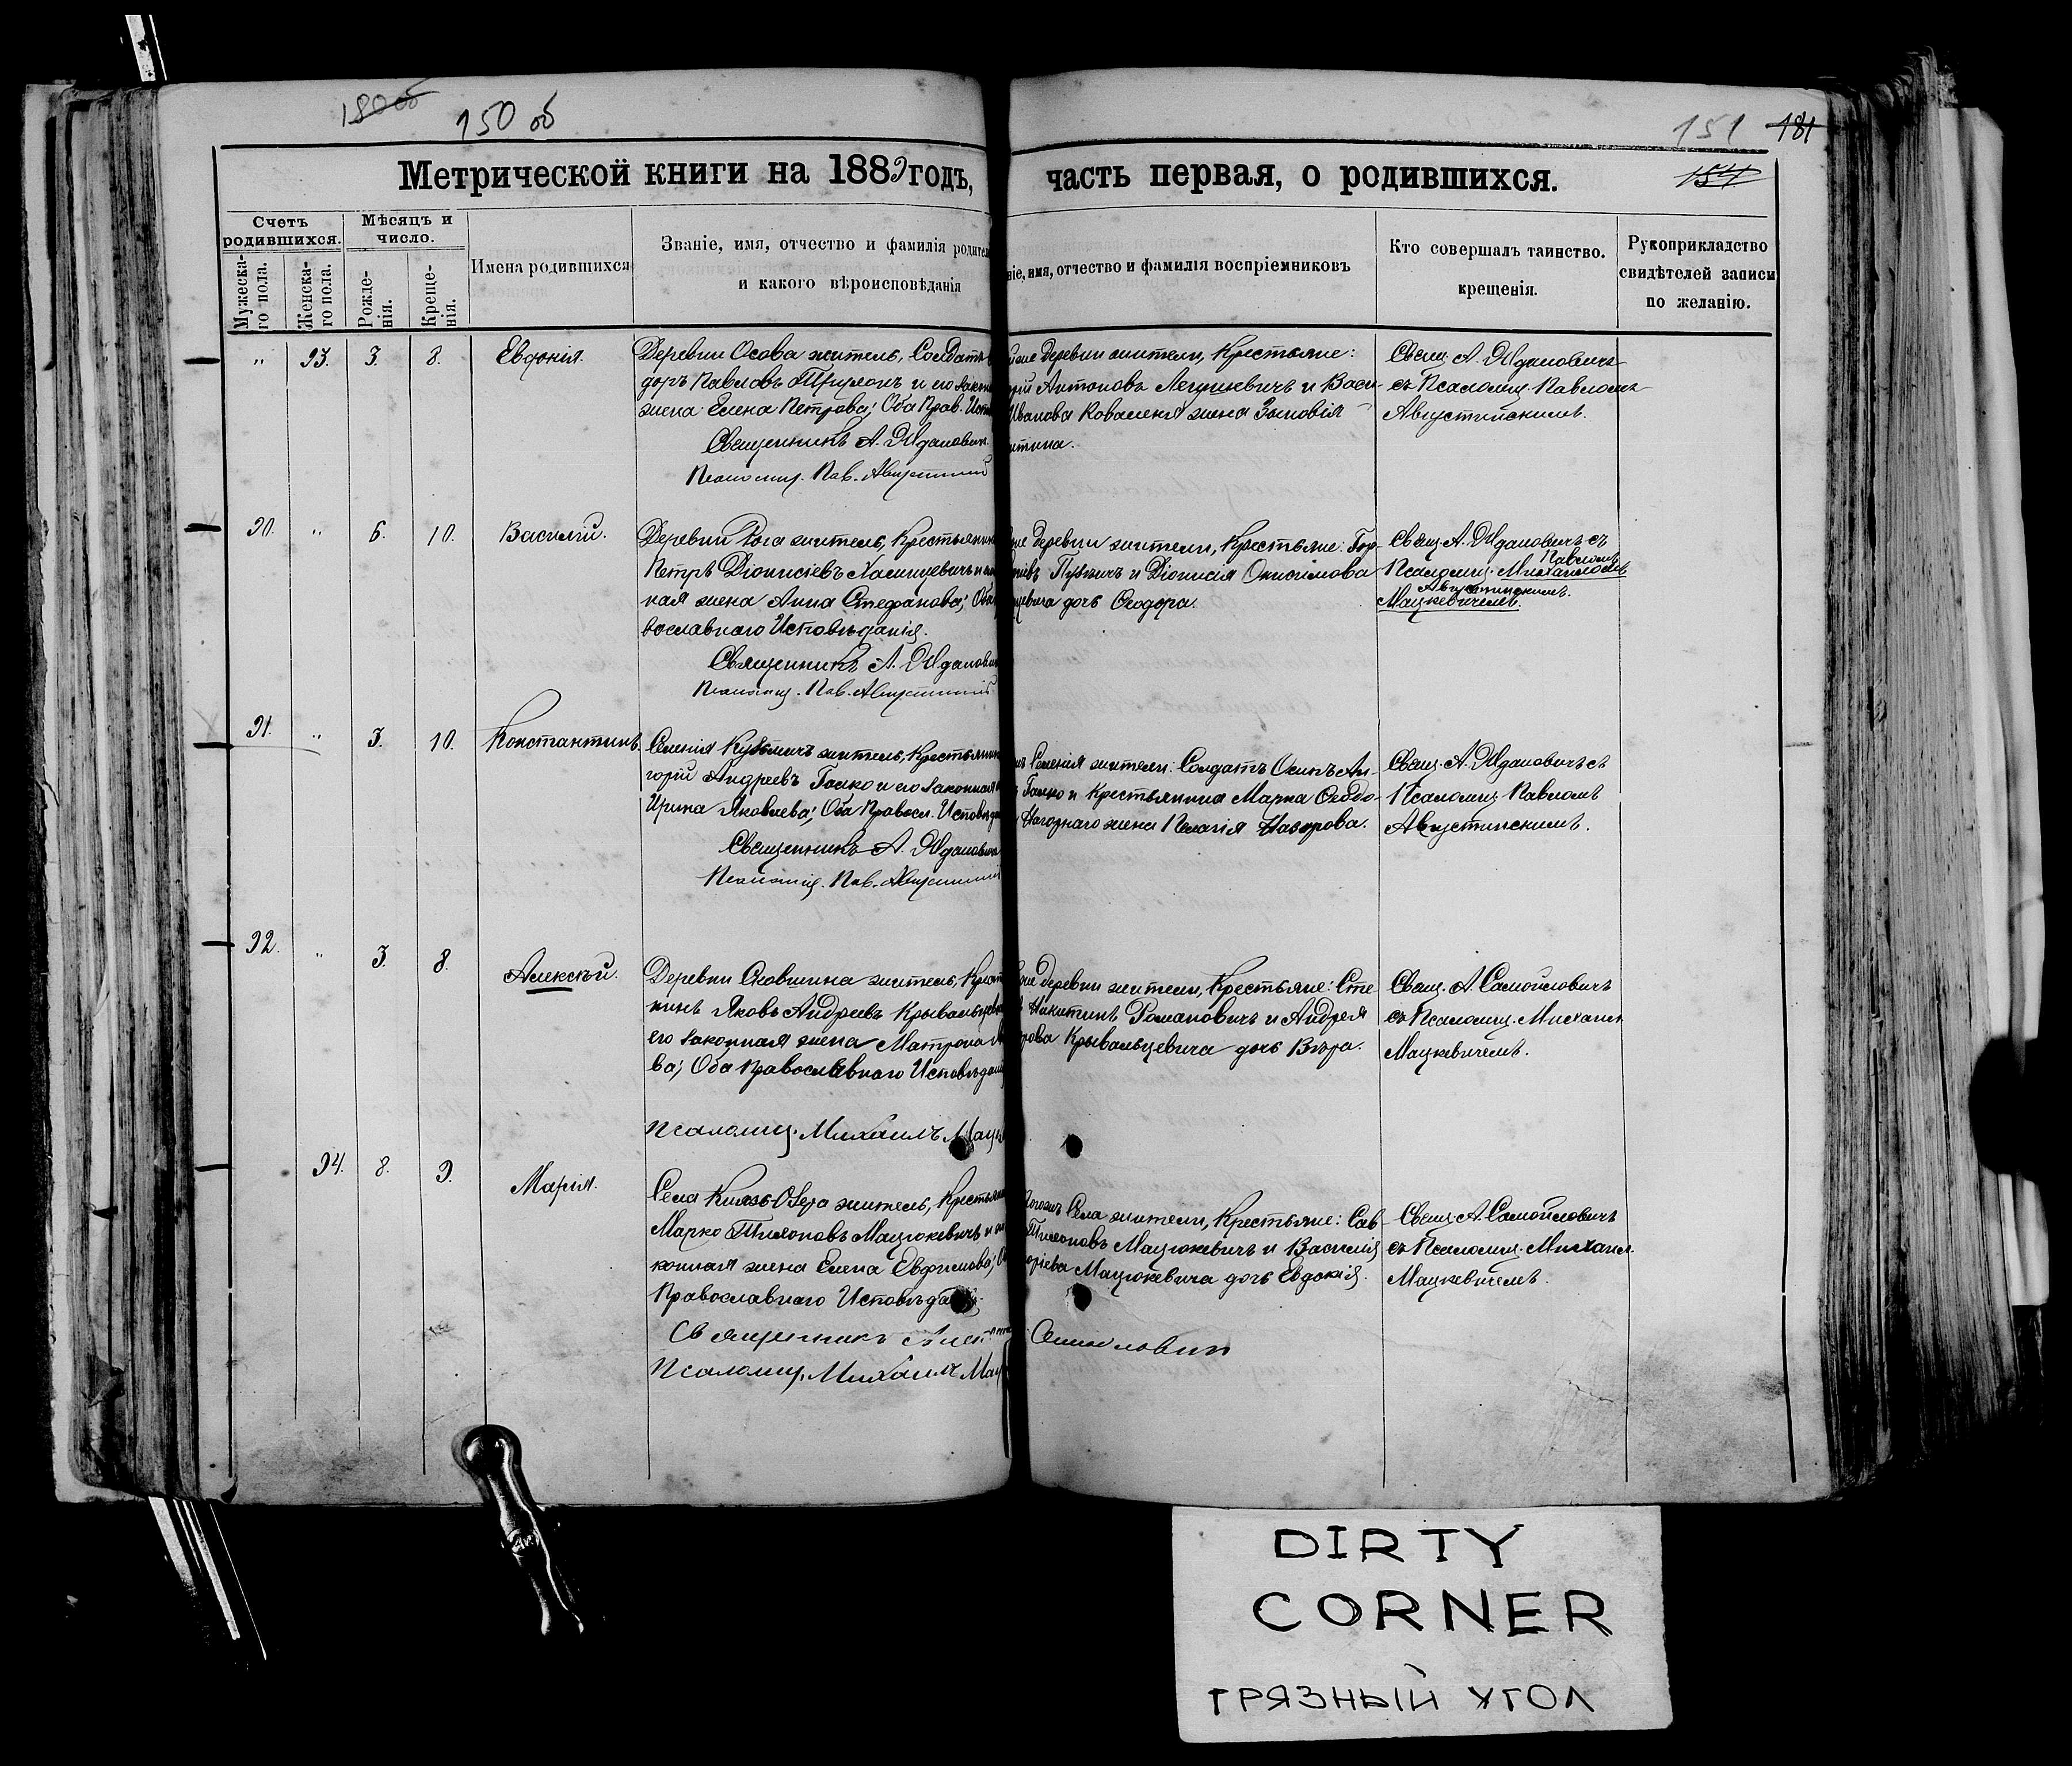 180 об
150 об
151 181
154
Метрической книги на 1889 годъ, часть первая, о родившихся.
Счетъ родившихся.
Мужеска-го пола.
Женска-го пола.
Мѣсяцъ и число.
Рожде-нія.
Креще-нія.
Имена родившихся
Званіе, имя, отчество и фамилія родител
и какого вѣроисповѣданія
ніе, имя, отчество и фамилія воспріемниковъ
Кто совершалъ таинство.
крещенія.
Рукоприкладство
свидѣтелей записи
по желанію.
" 93. 3. 8. Евдокія.
Деревни Осова житель, Солдатъ
доръ Павловъ и его закон
жена Елена Петрова; Оба Прав. Исп
Священникъ А. Жданович
Псаломщ. Пав. Августин
деревни жители, Крестьяне:
Антоновъ и Васи-
Иванова Коваленя жена Зиновія
итина.
Свящ. А. Ждановичъ
съ Псаломщ. Павломъ
Августинскимъ.
90. " 6. 10. Василій.
Деревни Рога житель, Крестьянин
Петръ Діонисіевъ
ная жена Анна Стефанова; Оба
вославнаго Исповѣданія.
Священникъ А. Жданович
Псаломщ. Пав. Августинскій
деревни жители, Крестьяне:
и Діонисія Онисимова
цевича дочь Ѳеодора.
Свящ. А. Ждановичъ съ
Павломъ
Псаломщ. Михаиломъ
Августинскимъ.
Мацкевичемъ.
91. " 3. 10. Константинъ.
Селенія Кузьмичъ житель, Крестьянин
горій Андреевъ Галко и его законная
Ирина Яковлева; Оба Правосл. Исповѣда
Священникъ А. Жданович
Псаломщ. Пав. Августинскі
Селенія жители: Солдатъ Осипъ Ан-
Галко и Крестьянина Марка Ѳеодо-
Нагорнаго жена Пелагія Назарова.
Свящ. А. Ждановичъ съ
Псаломщ. Павломъ
Августинскимъ.
92. " 3. 8. Алексѣй.
Деревни Сковшина житель, Крест
нинъ Яковъ Андреевъ Крывальцевич
его законная жена Матрона
ва; Оба Православнаго Исповѣдані
Псаломщ. Михаилъ Мацк
деревни жители, Крестьяне: Сте-
Никитинъ Романовичъ и Андрея
Крывальцевича дочь Вѣра.
Свящ. А. Самойловичъ
съ Псаломщ. Михаил
Мацкевичемъ.
94. 8. 9. Марія.
Села Князь-Озера житель, Крестьян
Марко Тихоновъ Мацюкевичъ и
конная жена Елена Евфимова;
Православнаго Исповѣда
Священникъ
Псаломщ. Михаилъ Мац
Села жители, Крестьяне: Сав-
Тихоновъ Мацюкевичъ и Василія
Мацюкевича дочь Евдокія.
Самойлович
Свящ. А. Самойловичъ
съ Псаломщ. Михаил.
Мацкевичемъ.
DIRTY
CORNER
ГРЯЗНЫЙ УГОЛ